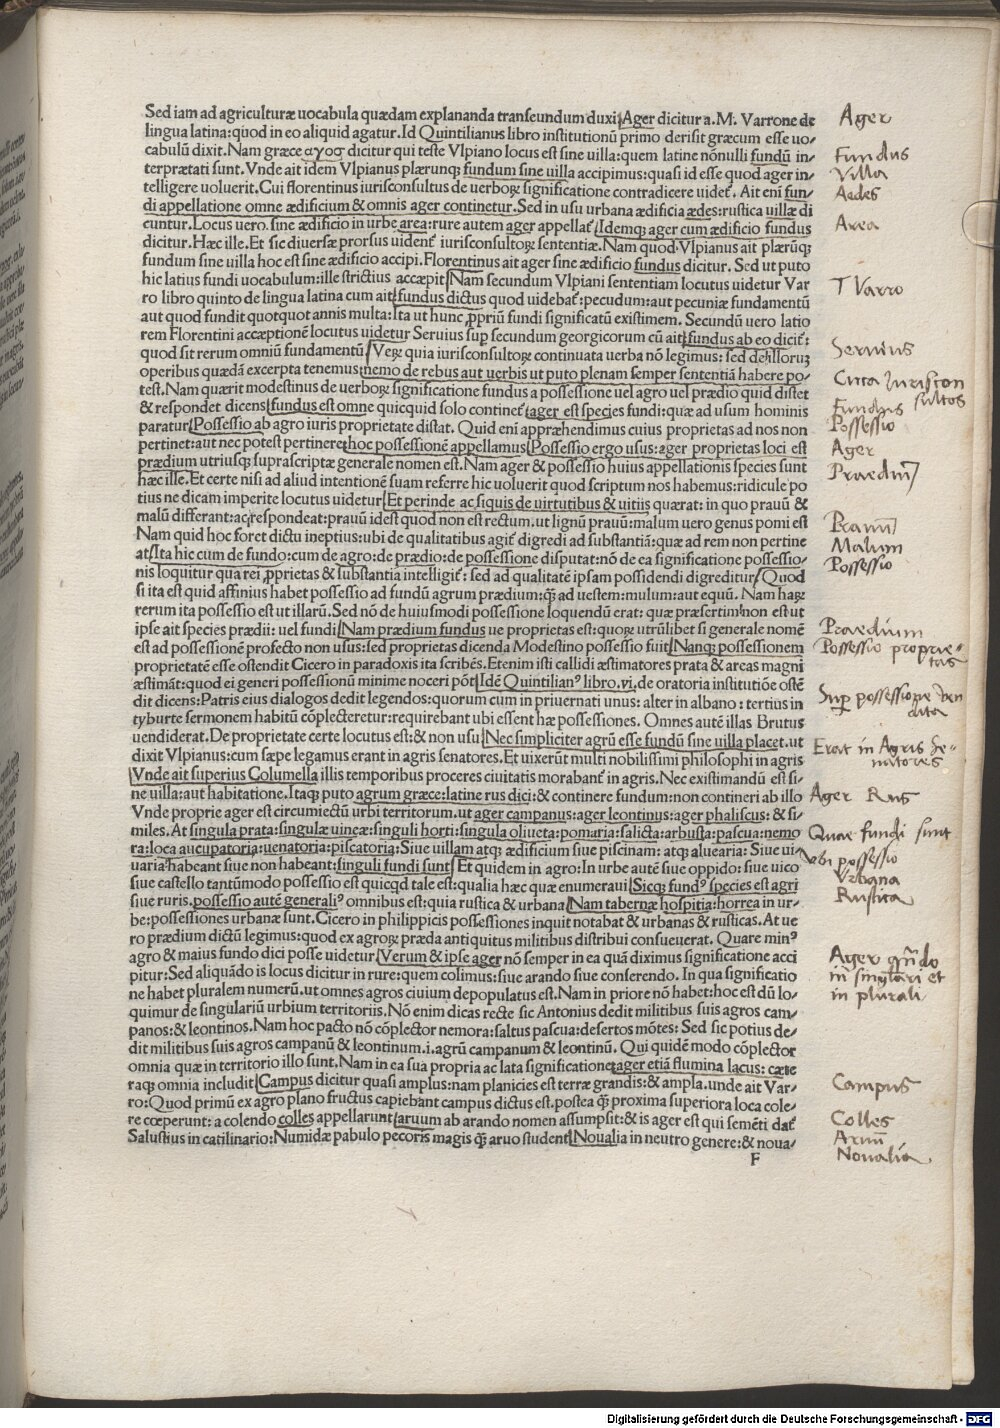 Sed iam ad agriculturæ uocabula quædam explananda transeundum duxi Ager dicitur a. M. Varrone de
lingua latina: quod in eo aliquid agatur. Id Quintilianus libro institutionū primo derisit græcum esse uo-
cabulū dixit. Nam græce αγος dicitur qui teste Vlpiano locus est sine uilla: quem latine nōnulli fundū in-
terprætati sunt. Vnde ait idem Vlpianus plærunq; fundum sine uilla accipimus: quasi id esse quod ager in-
telligere uoluerit. Cui florentinus iurisconsultus de uerboꝝ significatione contradicere uidet᷑. Ait eni fun-
di appellatione omne ædificium & omnis ager continetur. Sed in usu urbana ædificia ædes: rustica uillæ di
cuntur. Locus uero. sine ædificio in urbe area: rure autem ager appellat᷑ Idemq; ager cum ædificio fundus
dicitur. Hæc ille. Et sic diuersæ prorsus uident᷑ iurisconsultoꝝ sententiæ. Nam quod Vlpianus ait plærūq;
fundum sine uilla hoc est sine ædificio accipi. Florentinus ait ager sine ædificio fundus dicitur. Sed ut puto
hic latius fundi uocabulum: ille strictius accæpit Nam secundum Vlpiani sententiam locutus uidetur Var
ro libro quinto de lingua latina cum ait fundus dictus quod uidebat᷑: pecudum: aut pecuniæ fundamentū
aut quod fundit quotquot annis multa: Ita ut hunc ꝓpriū fundi significatū existimem. Secundū uero latio
rem Florentini accæptionē locutus uidetur Seruius sup̱ secundum georgicorum cū ait fundus ab eo dicit᷑:
quod sit rerum omniū fundamentū Veꝝ quia iurisconsultoꝝ continuata uerba nō legimus: sed de illoruꝫ
operibus quædā excerpta tenemus nemo de rebus aut uerbis ut puto plenam semper sententiā habere po-
test. Nam quærit modestinus de uerboꝝ significatione fundus a possessione uel agro uel prædio quid distet
& respondet dicens fundus est omne quicquid solo continet᷑ ager est species fundi: quæ ad usum hominis
paratur Possessio ab agro iuris proprietate distat. Quid eni appræhendimus cuius proprietas ad nos non
pertinet: aut nec potest pertinere hoc possessionē appellamus Possessio ergo usus: ager proprietas loci est
prædium utriusq; suprascriptæ generale nomen est. Nam ager & possessio huius appellationis species sunt
hæc ille. Et certe nisi ad aliud intentionē suam referre hic uoluerit quod scriptum nos habemus: ridicule po
tius ne dicam imperite locutus uidetur Et perinde ac siquis de uirtutibus & uitiis quærat: in quo prauū &
malū differant: ac respondeat: prauū idest quod non est rectum. ut lignū prauū: malum uero genus pomi est
Nam quid hoc foret dictu ineptius: ubi de qualitatibus agit᷑ digredi ad substantiā: quæ ad rem non pertine
at Ita hic cum de fundo: cum de agro: de prædio: de possessione disputat: nō de ea significatione possessio-
nis loquitur qua rei ꝓprietas & substantia intelligit᷑: sed ad qualitatē ipsam possidendi digreditur Quod
si ita est quid affinius habet possessio ad fundū agrum prædium: q̄ ad uestem: mulum: aut equū. Nam haꝝ
rerum ita possessio est ut illarū. Sed nō de huiusmodi possessione loquendū erat: quæ præsertim non est ut
ipse ait species prædii: uel fundi Nam prædium fundus ue proprietas est: quoꝝ utrūlibet si generale nomē
est ad possessionē profecto non usus: sed proprietas dicenda Modestino possessio fuit Nanq; possessionem
proprietatē esse ostendit Cicero in paradoxis ita scribēs. Etenim isti callidi æstimatores prata & areas magni
æstimāt: quod ei generi possessionū minime noceri pōt Idē Quintilianꝰ libro. vi. de oratoria institutiōe ostē
dit dicens: Patris eius dialogos dedit legendos: quorum cum in priuernati unus: alter in albano: tertius in
tyburte sermonem habitū cōplecteretur: requirebant ubi essent hæ possessiones. Omnes autē illas Brutus
uendiderat. De proprietate certe locutus est: & non usu Nec simpliciter agrū esse fundū sine uilla placet. ut
dixit Vlpianus: cum sæpe legamus erant in agris senatores. Et uixerūt multi nobilissimi philosophi in agris
Vnde ait superius Columella illis temporibus proceres ciuitatis morabant᷑ in agris. Nec existimandū est si-
ne uilla: aut habitatione. Itaq; puto agrum græce: latine rus dici: & continere fundum: non contineri ab illo
Vnde proprie ager est circumiectū urbi territorium. ut ager campanus: ager leontinus: ager phaliscus: & si-
miles. At singula prata: singulæ uineæ: singuli horti: singula oliueta: pomaria: salicta: arbusta: pascua: nemo
ra: loca aucupatoria: uenatoria: piscatoria: Siue uillam atq; ædificium siue piscinam: atq; aluearia: Siue ui-
uaria habeant siue non habeant: singuli fundi sunt Et quidem in agro: In urbe autē siue oppido: siue uico
siue castello tantūmodo possessio est quicqd tale est: qualia hæc quæ enumeraui Sicq; fundꝰ species est agri
siue ruris. possessio autē generaliꝰ omnibus est: quia rustica & urbana Nam tabernæ hospitia: horrea in ur-
be: possessiones urbanæ sunt. Cicero in philippicis possessiones inquit notabat & urbanas & rusticas. At ue
ro prædium dictū legimus: quod ex agroꝝ præda antiquitus militibus distribui consueuerat. Quare minꝰ
agro & maius fundo dici posse uidetur Verum & ipse ager nō semper in ea quā diximus significatione acci
pitur: Sed aliquādo is locus dicitur in rure: quem colimus: siue arando siue conserendo. In qua significatio
ne habet pluralem numerū. ut omnes agros ciuium depopulatus est. Nam in priore nō habet: hoc est dū lo-
quimur de singulariū urbium territoriis. Nō enim dicas recte sic Antonius dedit militibus suis agros cam-
panos: & leontinos. Nam hoc pacto nō cōplector nemora: saltus pascua: desertos mōtes: Sed sic potius de-
dit militibus suis agros campanū & leontinum. i. agrū campanum & leontinū. Qui quidē modo cōplector
omnia quæ in territorio illo sunt. Nam in ea sua propria ac lata significatione ager etiā flumina lacus: cæte
raq; omnia includit Campus dicitur quasi amplus: nam planicies est terræ grandis: & ampla. unde ait Var-
ro: Quod primū ex agro plano fructus capiebant campus dictus est. postea q̄ proxima superiora loca cole-
re cœperunt: a colendo colles appellarunt aruum ab arando nomen assumpsit: & is ager est qui semēti dat᷑
Salustius in catilinario: Numidæ pabulo pecoris magis q̄ aruo student Noualia in neutro genere: & noua-
F
Ager
Fundus
Villa
Aedes
Area
T Varro
Seruius
Cūta Juriscon
sultos
Fundus
Possessio
Ager
Praediū
Prauū
Malum
Possessio
Praedium
Possessio proprie-
tas
Sup̱ possessione ven
dita
Erat in Agris Se-
natores
Ager Rus
Quae fundi sunt
vbi possessio
Vrbana
Rustica
Ager qn̄do
in singlari et
in plurali
Campus
Colles
Aruū
Noualia
Digitalisierung gefördert durch die Deutsche Forschungsgemeinschaft - DFG